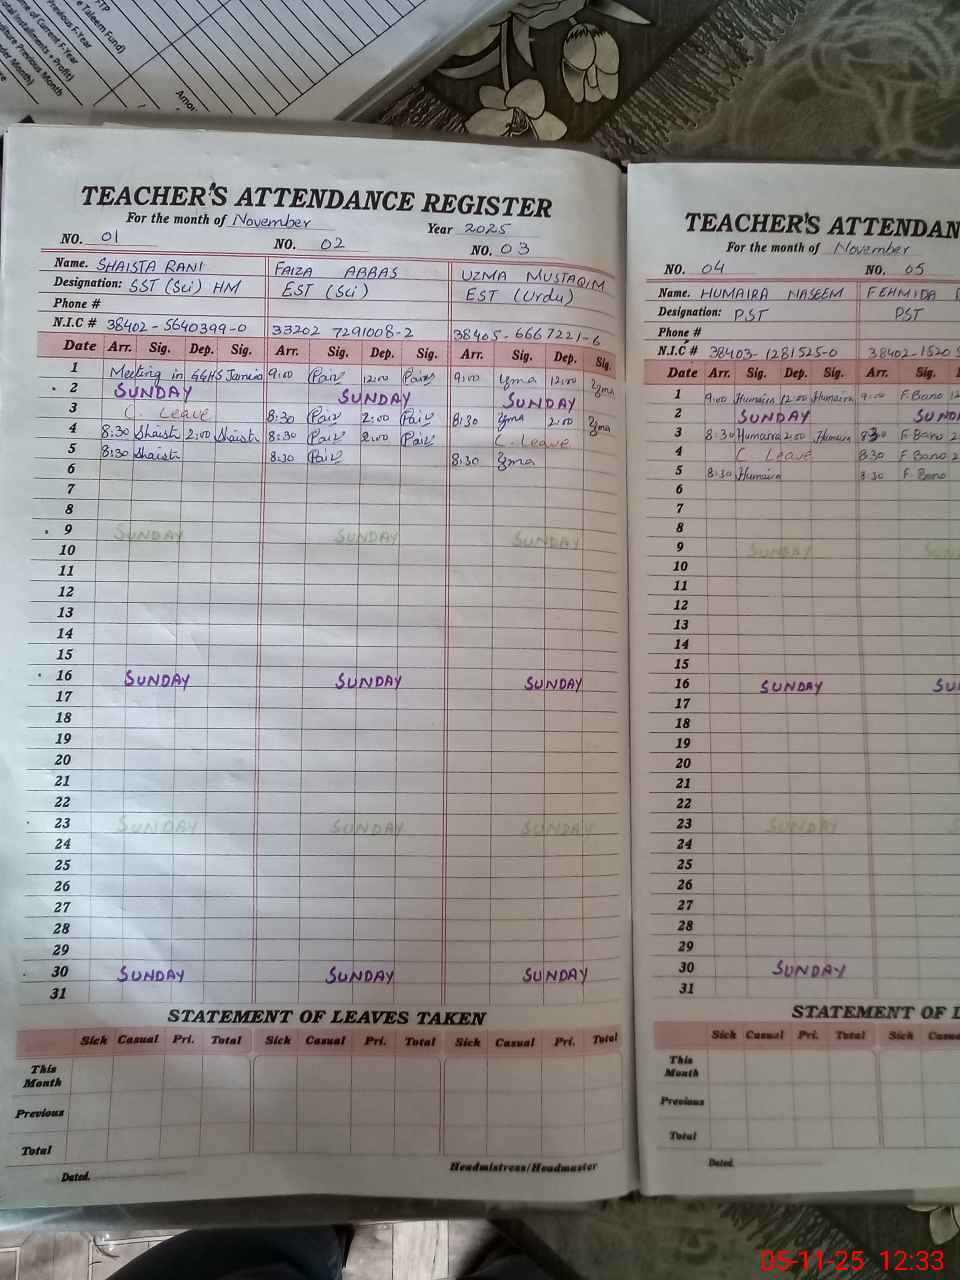 TP
e Taleem Fund)
Previous F-Year
me of Current F-Year
otal Installments + Profit)
diture Previous Month
der Month)
ure
Amou
TEACHER'S ATTENDANCE REGISTER
For the month of November Year 2025
NO. 01 NO. 02 NO. 03
Name. SHAISTA RANI FAIZA ABBAS UZMA MUSTAQIM
Designation: SST (Sci) HM EST (Sci) EST (Urdu)
Phone #
N.I.C # 38402-5640399-0 33202 7291008-2 38405-6667221-6
Date Arr. Sig. Dep. Sig. Arr. Sig. Dep. Sig. Arr. Sig. Dep. Sig.
1 Meeting in GGHS 9:00 12:00 9:00 Uzma 12:00 Uzma
2 SUNDAY SUNDAY SUNDAY
3 C. Leave 8:30 2:00 8:30 Uzma 2:00 Uzma
4 8:30 Shaista 2:00 Shaista 8:30 2:00 C. Leave
5 8:30 Shaista 8:30 8:30 Uzma
6
7
8
9 SUNDAY SUNDAY SUNDAY
10
11
12
13
14
15
16 SUNDAY SUNDAY SUNDAY
17
18
19
20
21
22
23 SUNDAY SUNDAY SUNDAY
24
25
26
27
28
29
30 SUNDAY SUNDAY SUNDAY
31
STATEMENT OF LEAVES TAKEN
Sick Casual Pri. Total Sick Casual Pri. Total Sick Casual Pri. Total
This Month
Previous
Total
Dated. Headmistress/Headmaster
TEACHER'S ATTENDAN
For the month of November
NO. 04 NO. 05
Name. HUMAIRA NASEEM FEHMIDA
Designation: PST PST
Phone #
N.I.C # 38403-1281525-0 38402-1520
Date Arr. Sig. Dep. Sig. Arr. Sig.
1 9:00 Humaira 12:00 Humaira 9:00 F.Bano 12
2 SUNDAY SUND
3 8:30 Humaira 2:00 Humaira 8:30 F.Bano 2
4 C Leave 8:30 F.Bano 2
5 8:30 Humaira 8:30 F.Bano
6
7
8
9 SUNDAY SUN
10
11
12
13
14
15
16 SUNDAY SU
17
18
19
20
21
22
23 SUNDAY S
24
25
26
27
28
29
30 SUNDAY
31
STATEMENT OF L
Sick Casual Pri. Total Sick Casu
This Month
Previous
Total
Dated.
05-11-25 12:33